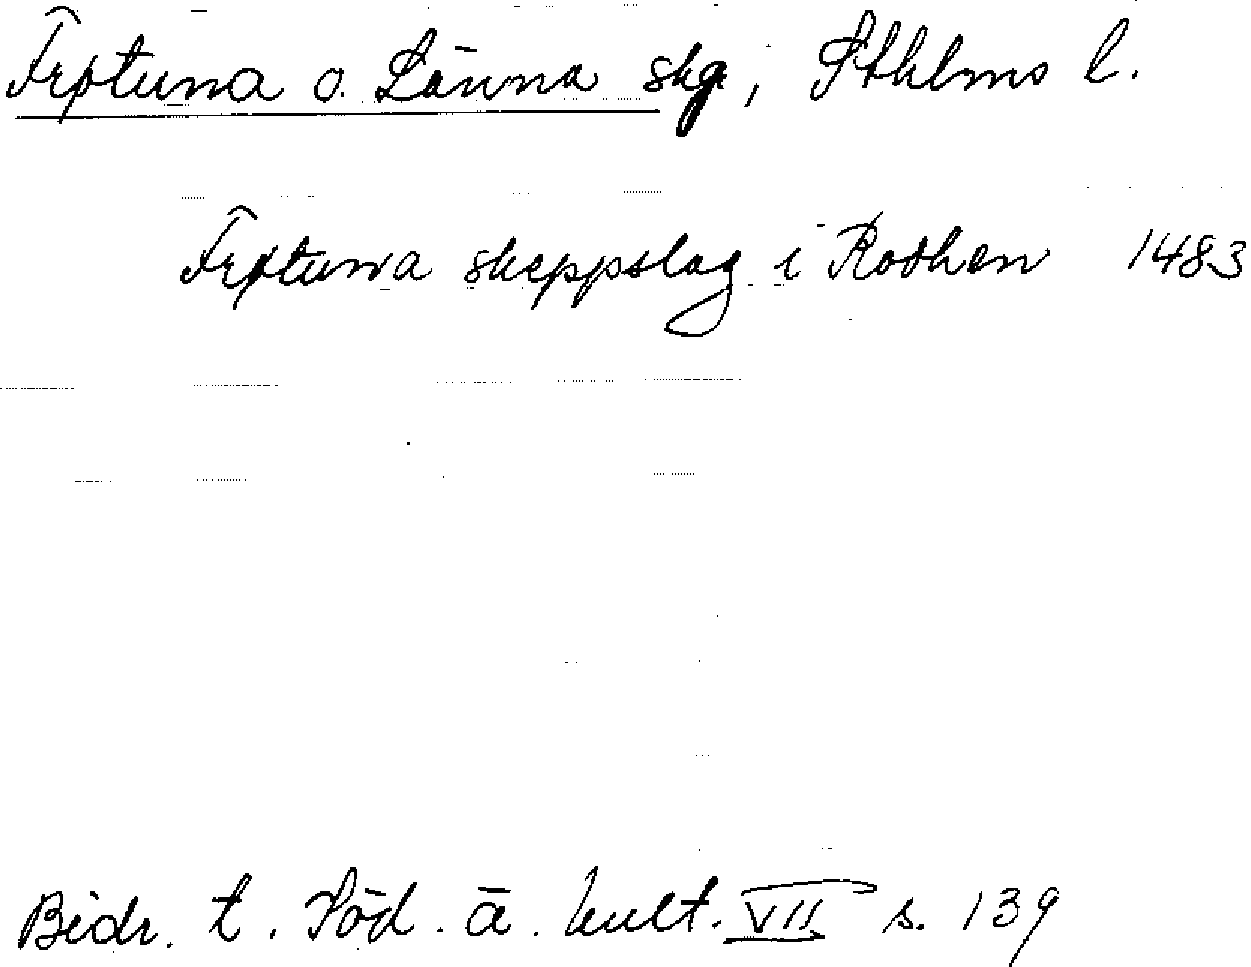 Frötuna o. Länna skg, Sthlms l.
Frötuna skeppslag i Rodhen 1483
Bidr. t. Söd. ä. kult. VII s. 139